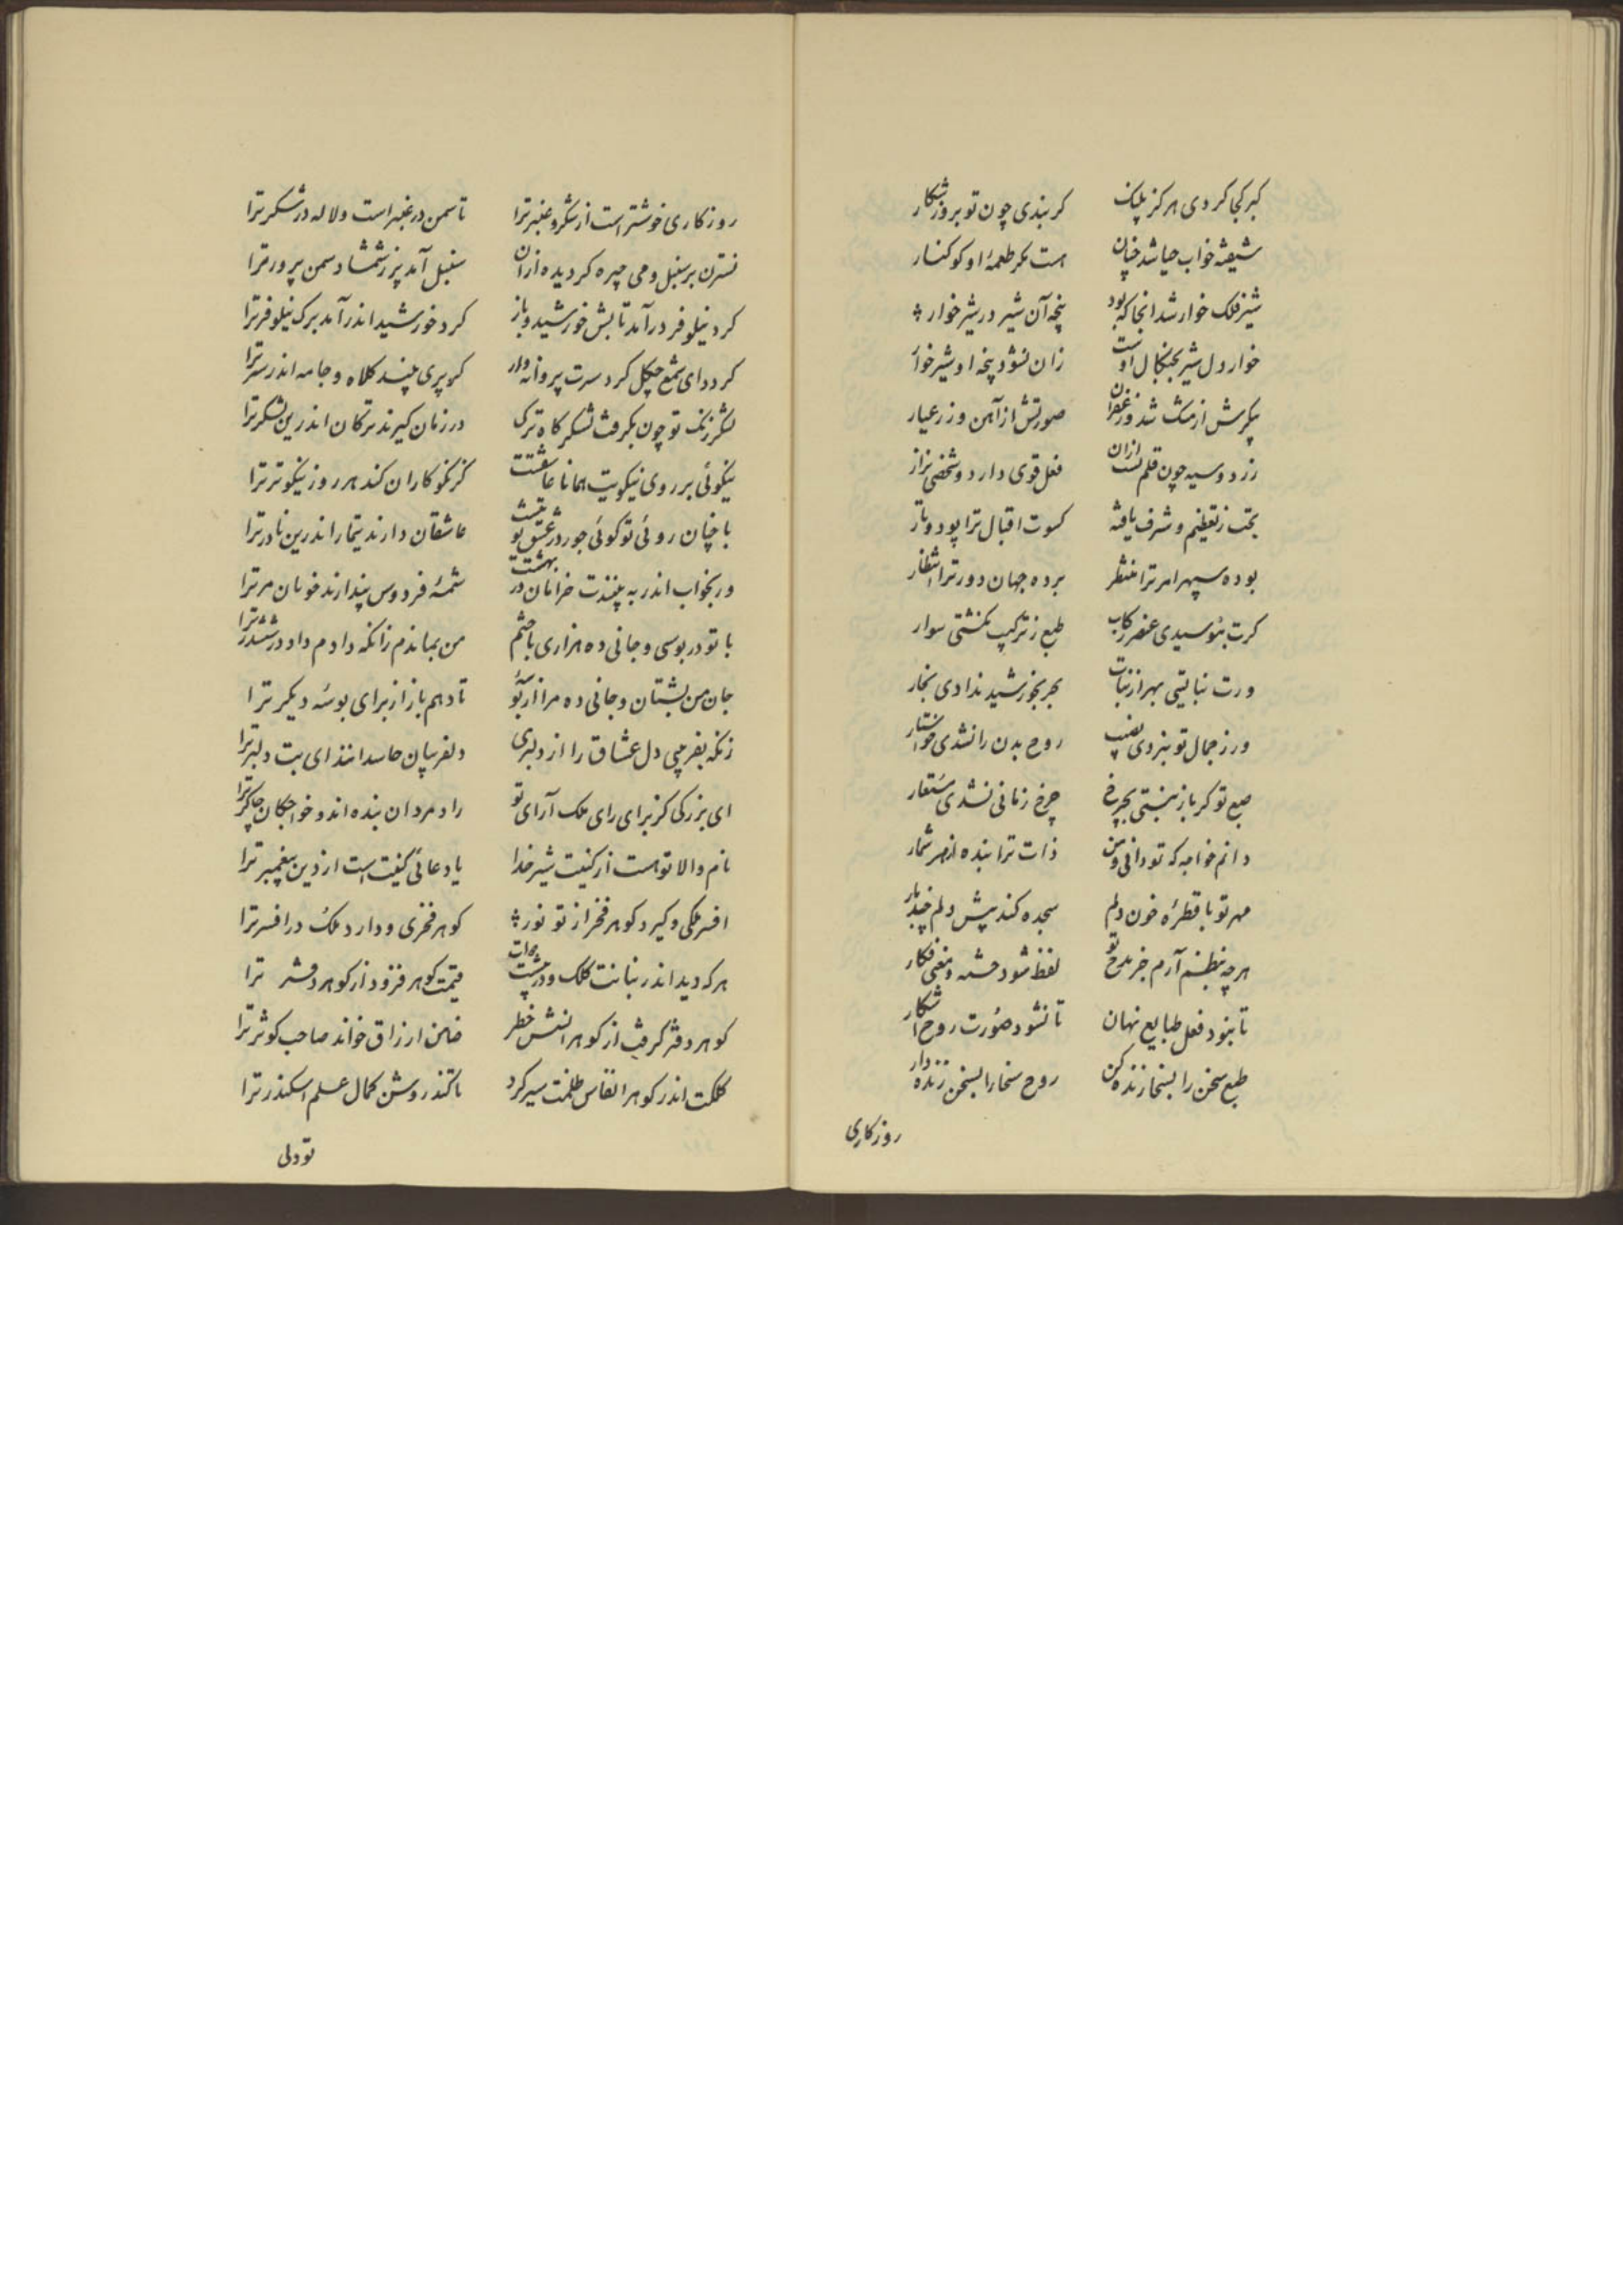 کبر کجا کردی هرگز پلنگ    کر بندی چون تو بروز شکار
شیفته خواب حیا شد چنان    است مگر طعمهٔ او کوکنار
شیر فلک خوار شد انجا که بود    پنجه آن شیر در شیر خوار
خوار دل شیر بچنکال اوست    زان نشود پنجه او شیر خوار
پیکرش از مشک شد و زعفران    صورتش از آهن و زر عیار
زرد و سیه چون قلم است ازان    فعل قوی دارد و شخصی نزار
بخت ز تعظیم و شرف یافته    کسوت اقبال ترا پود و تار
بوده سپهر امر ترا منتظر    برده جهان دور ترا انتظار
کرت نبوسیدی عنصر رکاب    طبع ز ترکیب نکشتی سوار
ورت نبایتی بهر از نبات    بحر بخورشید ندادی بخار
ور ز جمال تو نبردی نصیب    روح بدن را نشدی خواستار
طبع تو کر باز نبستی بچرخ    چرخ زمانی نشدی مستعار
دانم خواجه که تو دانی و من    ذات ترا بنده ام از هر شمار
مهر تو با قطرهٔ خون دلم    سجده کند پیش دلم چند بار
هر چه بنظم آرم جز مدح تو    لفظ شود خسته و معنی فکار
تا نبود فعل طبایع نهان    تا نشود صورت روح آشکار
طبع سخن را بسخا زنده کن    روح سخا را بسخن زنده دار
روزکاری
روزکاری خوشتر است از شکر و عنبر ترا    تا سمن در عنبر است و لاله در شکر ترا
نسترن بر سنبل و می چیره کردیده ازان    سنبل آمد پر ز شمشاد سمن پرور ترا
کرد نیلوفر درآمد تابش خورشید و باز    کرد خورشید اندر آمد برک نیلوفر ترا
کردد ای شمع چکل کرد سرت پروانه وار    کر پری بیند کلاه و جامه اندر سر ترا
لشکر زنک تو چون بکرفت لشکر کاه ترک    در زمان کیرند ترکان اندرین لشکر ترا
نیکوئی بر روی نیکویت همانا عاشقست    کز نکو کاران کند هر روز نیکوتر ترا
با چنان روئی تو کوئی جور در عشق تو نیست    عاشقان دارند تیمار اندرین نادر ترا
ور بخواب اندر به بینندت خرامان در بهشت    شمهٔ فردوس پندارند خوبان مر ترا
با تو در بوسی و جانی ده هزاری باختم    من بماندم زانکه دادم داد در ششدر ترا
جان من بستان و جانی ده مرا از بوسهٔ تو    تا دهم باز از برای بوسه دیکر ترا
زنکه بفریبی دل عشاق را از دلبری    دلفریبان حاسدانند ای بت دلبر ترا
ای بزرکی کز برای رای ملک آرای تو    راد مردان بنده اند و خواجکان چاکر ترا
نام والا تو است از کنیت شیر خدا    یا دعائی کنیت است از دین پیغمبر ترا
افسر ملکی و کیرد کوهر فخر از تو نور    کوهر فخری و دارد ملک در افسر ترا
هر که دید اندر بنانت کلک و در پیشت دوات    قیمت کوهر فزود از کوهر دفتر ترا
کوهر دفتر کرفت از کوهر انسش خطر    ضامن ارزاق خواند صاحب کوثر ترا
کلکت اندر کوهر انقاس ظلمت سیر کرد    تا کند روشن کمال علم اسکندر ترا
تو دلی